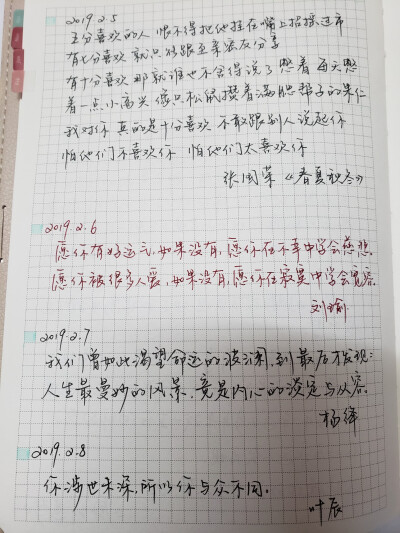 2019.2.5
五分喜欢的人 恨不得把他挂在嘴上招摇过市
有七分喜欢 就只够跟至亲密友分享
有十分喜欢 那就谁也不舍得说了 憋着 每天憋
着一点小高兴 像只松鼠攒着满腮帮子的果仁
我对你 真的是十分喜欢 不敢跟别人说起你
怕他们不喜欢你 怕他们太喜欢你
张国荣《春夏秋冬》
2019.2.6
愿你有好运气,如果没有,愿你在不幸中学会慈悲。
愿你被很多人爱,如果没有,愿你在寂寞中学会宽容。
刘瑜
2019.2.7
我们曾如此渴望命运的波澜,到最后才发现:
人生最曼妙的风景,竟是内心的淡定与从容。
杨绛
2019.2.8
你涉世未深,所以你与众不同。
叶辰